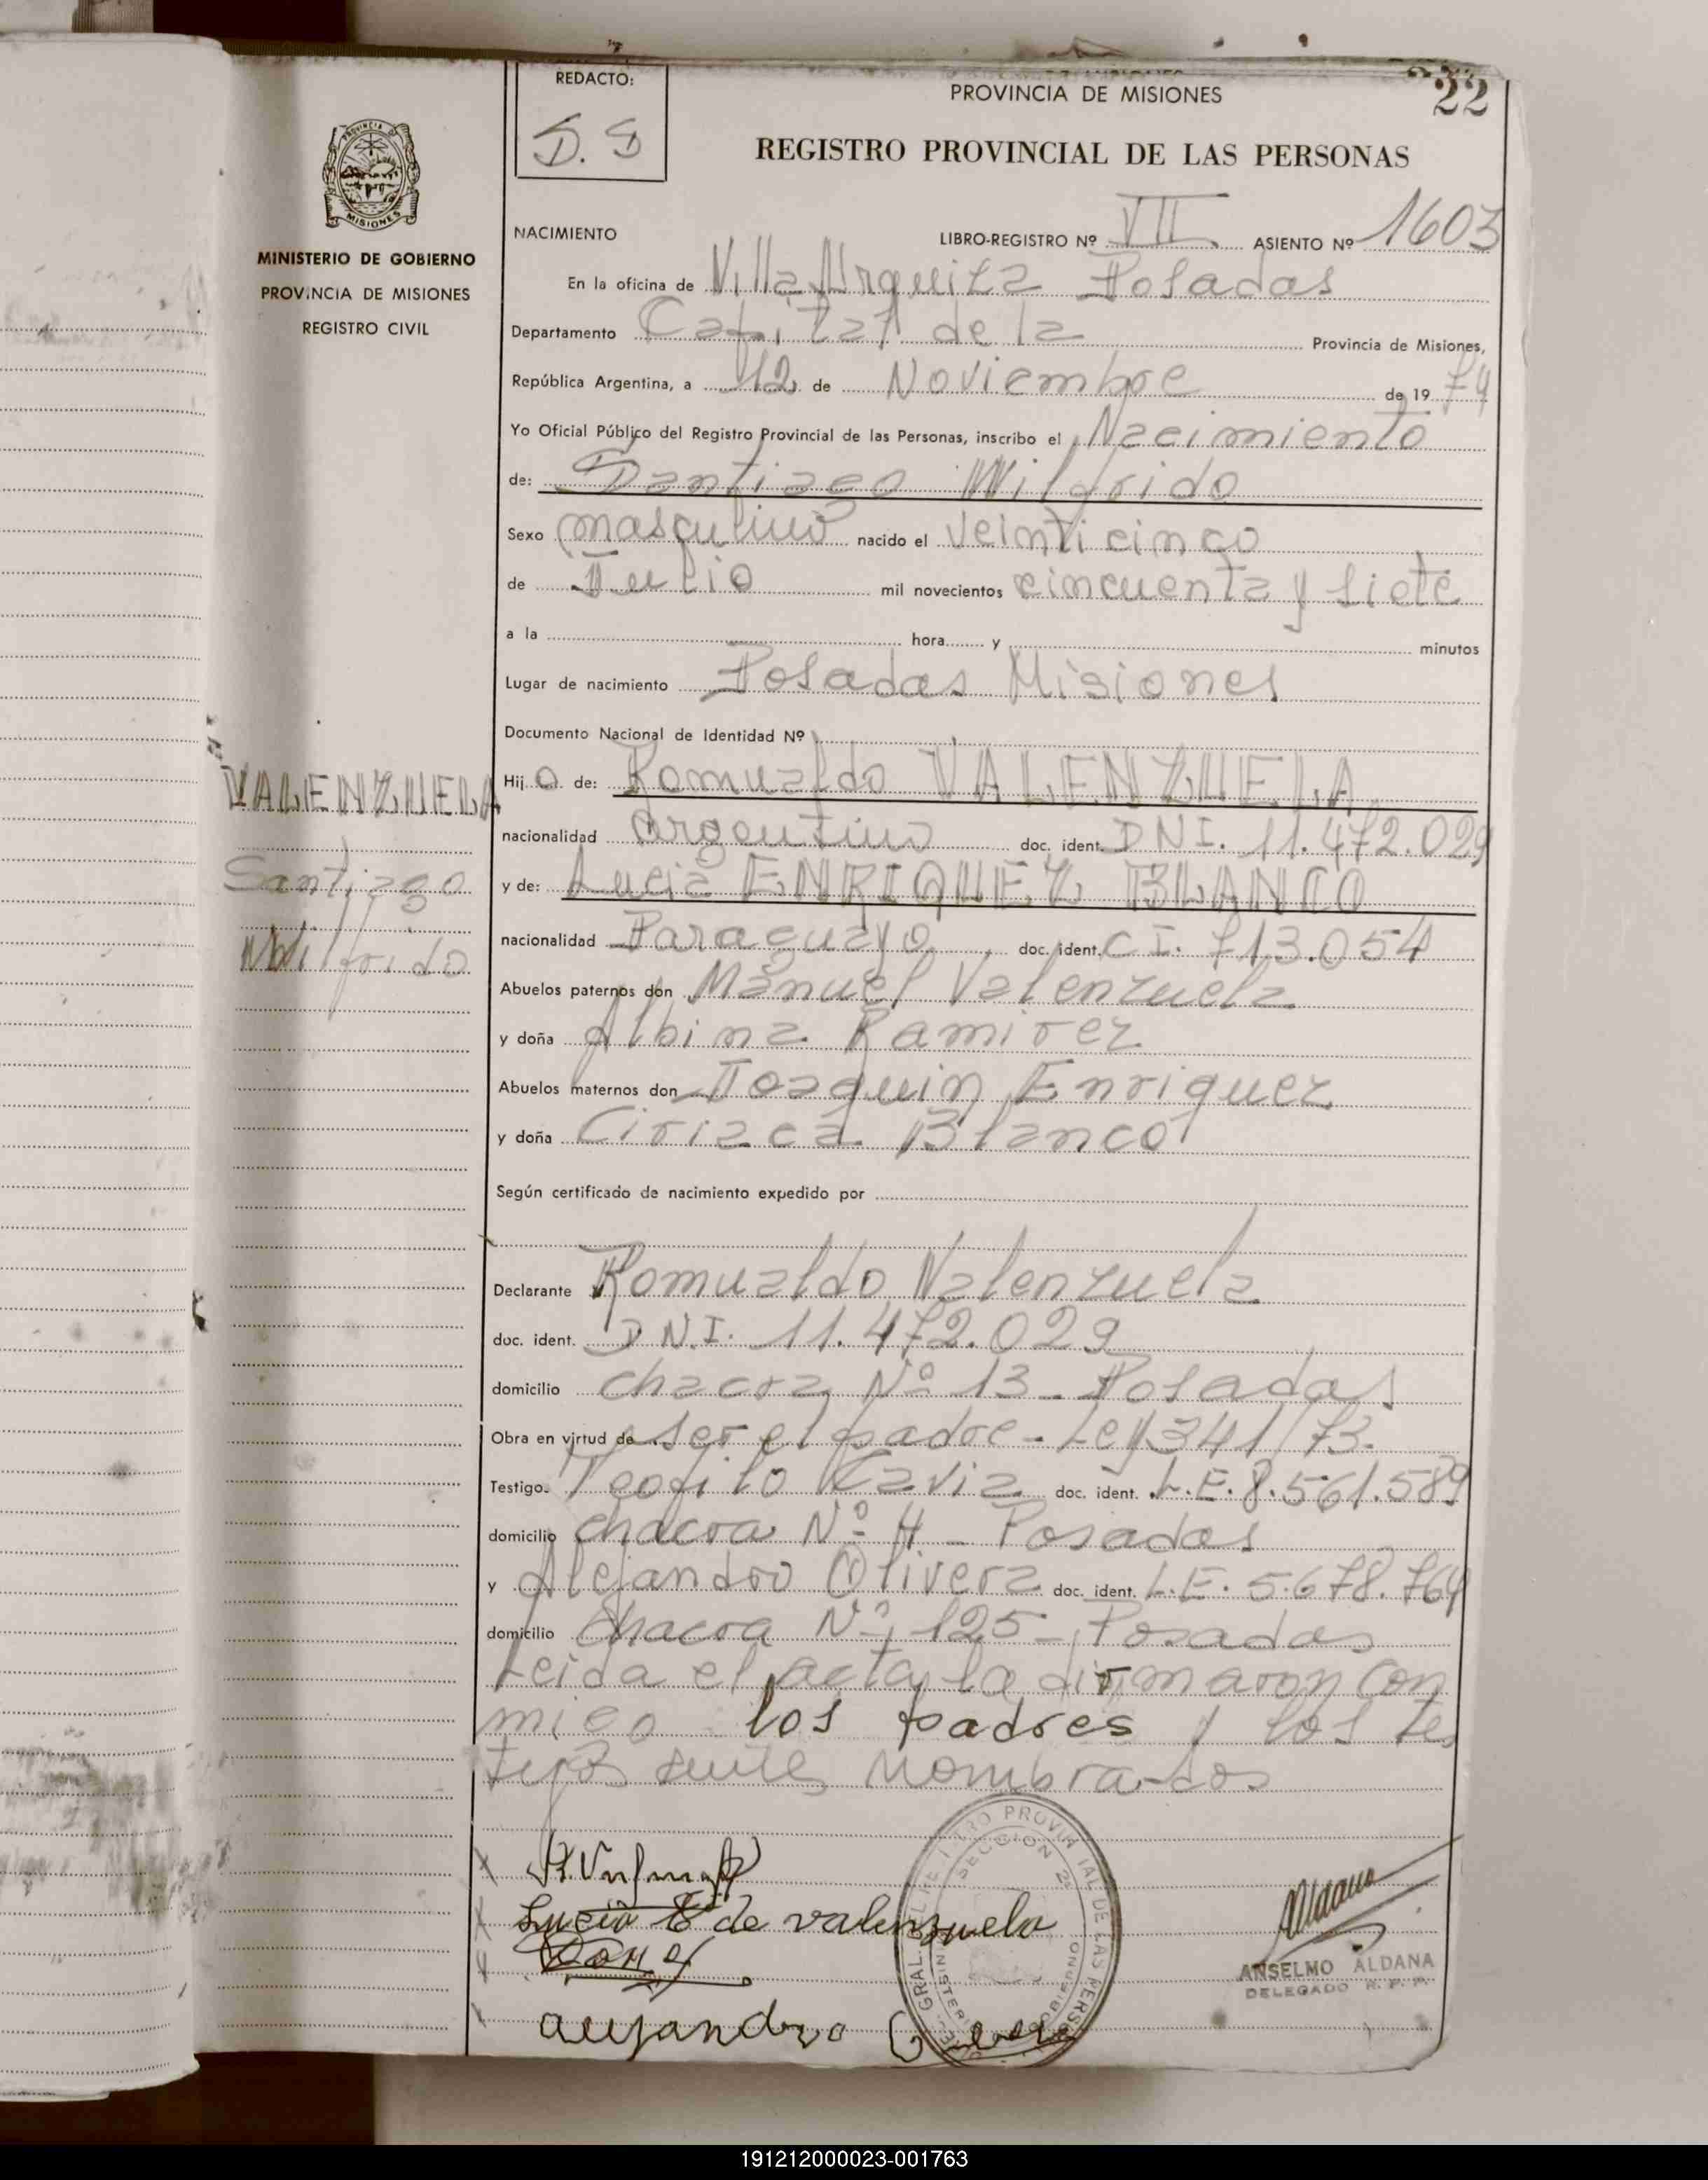 REDACTO:
D. D
PROVINCIA DE MISIONES
22
REGISTRO PROVINCIAL DE LAS PERSONAS
MINISTERIO DE GOBIERNO
PROVINCIA DE MISIONES
REGISTRO CIVIL
NACIMIENTO LIBRO-REGISTRO Nº VII ASIENTO Nº 1603
En la oficina de Villa Urquiza Posadas
Departamento Capital de la Provincia de Misiones,
República Argentina, a 12 de Noviembre de 19 74
Yo Oficial Público del Registro Provincial de las Personas, inscribo el Nacimiento
de: Santiago Wilfrido
Sexo masculino nacido el veinticinco
de Julio mil novecientos cincuenta y siete
a la hora y minutos
Lugar de nacimiento Posadas Misiones
Documento Nacional de Identidad Nº
VALENZUELA
Santiago
Wilfrido
Hij o de: Romualdo VALENZUELA
nacionalidad argentino doc. ident. DNI. 11.472.029
y de: Lucia ENRIQUEZ BLANCO
nacionalidad Paraguayo doc. ident. CI. 713.054
Abuelos paternos don Manuel Valenzuela
y doña Albina Ramirez
Abuelos maternos don Joaquin Enriquez
y doña Ciriaca Blanco
Según certificado de nacimiento expedido por
Declarante Romualdo Valenzuela
doc. ident. D N.I. 11.472.029
domicilio chacra Nº 13 - Posadas
Obra en virtud de ser el padre - Ley 341/73.
Testigo. Teofilo doc. ident. L.E. 8.561.589
domicilio chacra Nº 4 - Posadas
y Alejandro Olivera doc. ident. L.E. 5.678.764
domicilio Chacra Nº 125 - Posadas
Leida el acta la firmaron con
migo los padres y los tes
tigos nombrados
Lucia E de valenzuela
alejandro
SECCION 2ª
ANSELMO ALDANA
DELEGADO R. P. P.
191212000023-001763